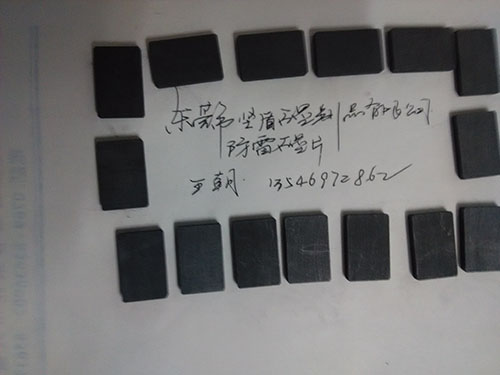 东莞市坚盾石墨制品有限公司
防雷石墨片
王朝 13546972862